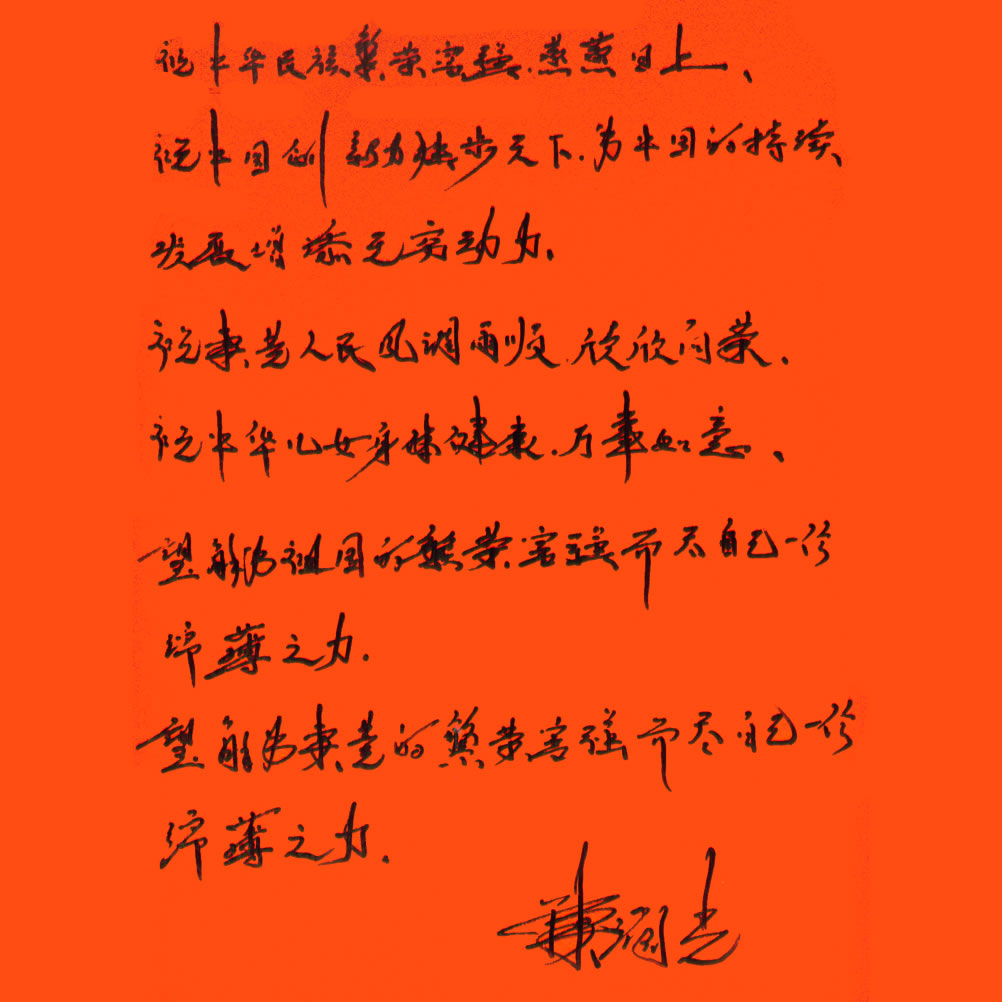 祝中华民族繁荣富强、蒸蒸日上、
祝中国创新力独步天下、为中国的持续
发展增添无穷动力、
祝娄邑人民风调雨顺、欣欣向荣、
祝中华儿女身体健康、万事如意、
望能为祖国的繁荣富强而尽自己一份
绵薄之力.
望能为娄邑的繁荣富强而尽自己一份
绵薄之力.